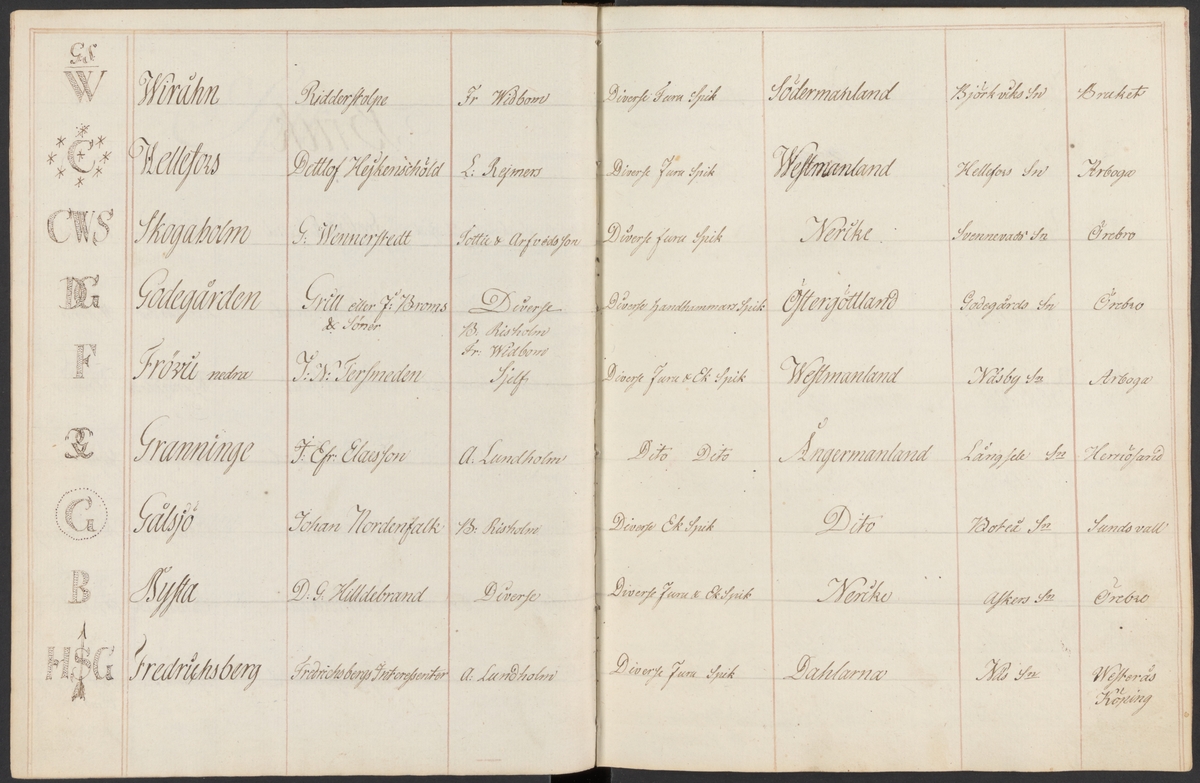 GS
W Wiråhn Ridderstolpe Fr Widbom Diverse Furu Spik Södermanland Björkviks Sn Bruket
C Hellefors Dettlof Heÿkenschöld L: Rejmers Diverse Furu Spik Westmanland Hellefors Sn Arboga
CWS Skogaholm G: Wennerstedt Tottie & Arfvedsson Diverse furu Spik Nerike Svennevads Sn Örebro
DG Godegården Grill eller J: Broms Diverse Diverse Handhammars Spik Östergöttland Godegårds Sn Örebro
& Söner B: Risholm
Fr: Widbom
F Frövi nedra J: N: Tersmeden Sjelf Diverse Furu & Ek Spik Westmanland Näsby Sn Arboga
G Granninge J: Efr Claesson A. Lundholm Dito Dito Ångermanland Långsele Sn Hernösand
G Gålsjö Johan Nordenfalk B: Risholm Diverse Ek Spik Dito Boteå Sn Sundsvall
B Bysta D: G: Hilldebrand Diverse Diverse Furu & Ek Spik Nerike Askers Sn Örebro
HSG Fredrichsberg Fredrichsbergs Interessenter A: Lundholm Diverse Furu Spik Dahlarna Näs Sn Westerås
Köping